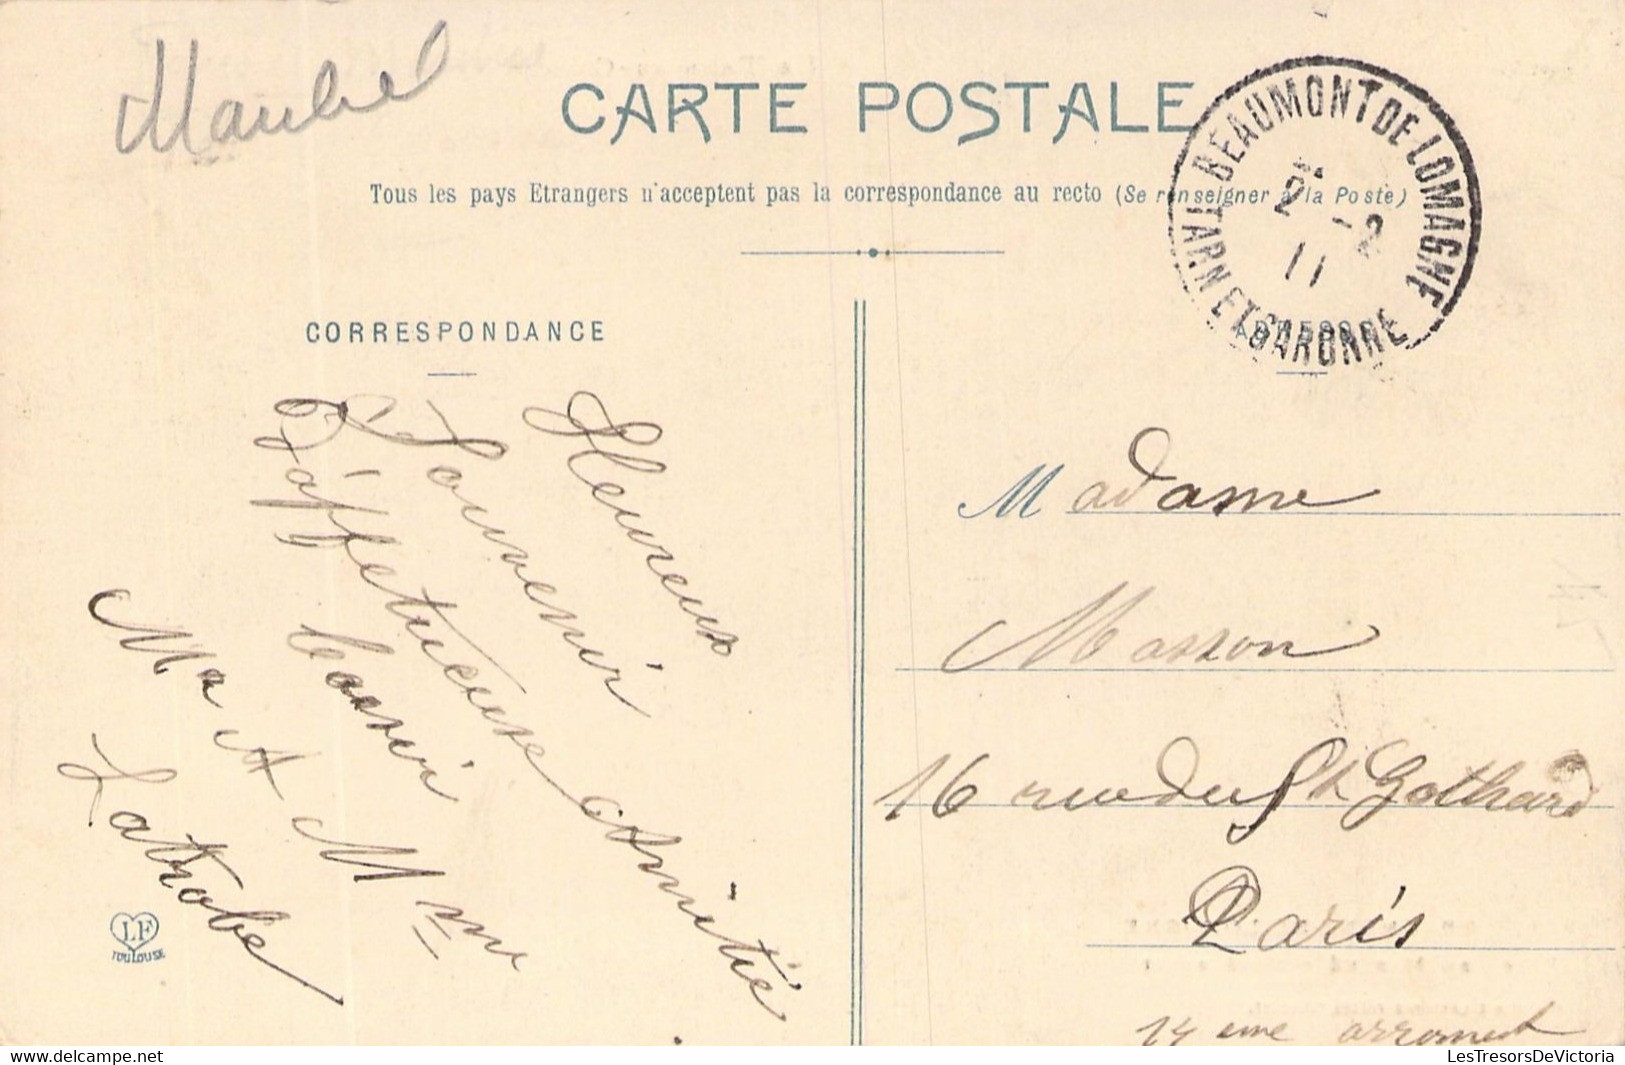 Maubel
CARTE POSTALE
Tous les pays Etrangers n'acceptent pas la correspondance au recto (Se renseigner à la Poste)
BEAUMONT DE LOMAGNE
2 - 2
11
TARN ET GARONNE
CORRESPONDANCE
ADRESSE
Heureux
Souvenir
D'affectueuse Amitié
M A Mme
Latrobe
LF
TOULOUSE
Madame
Masson
16 rue du St Gothard
Paris
14 eme
LesTresorsDeVictoria